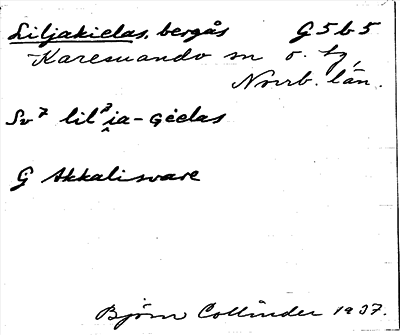 Liljakielas, bergås G5b5
Karesuando sn o. tg,
Norrb. län.
Sv⁷ lil²ia-gėelas
G Akkalisvare
Björn Collinder 1937.